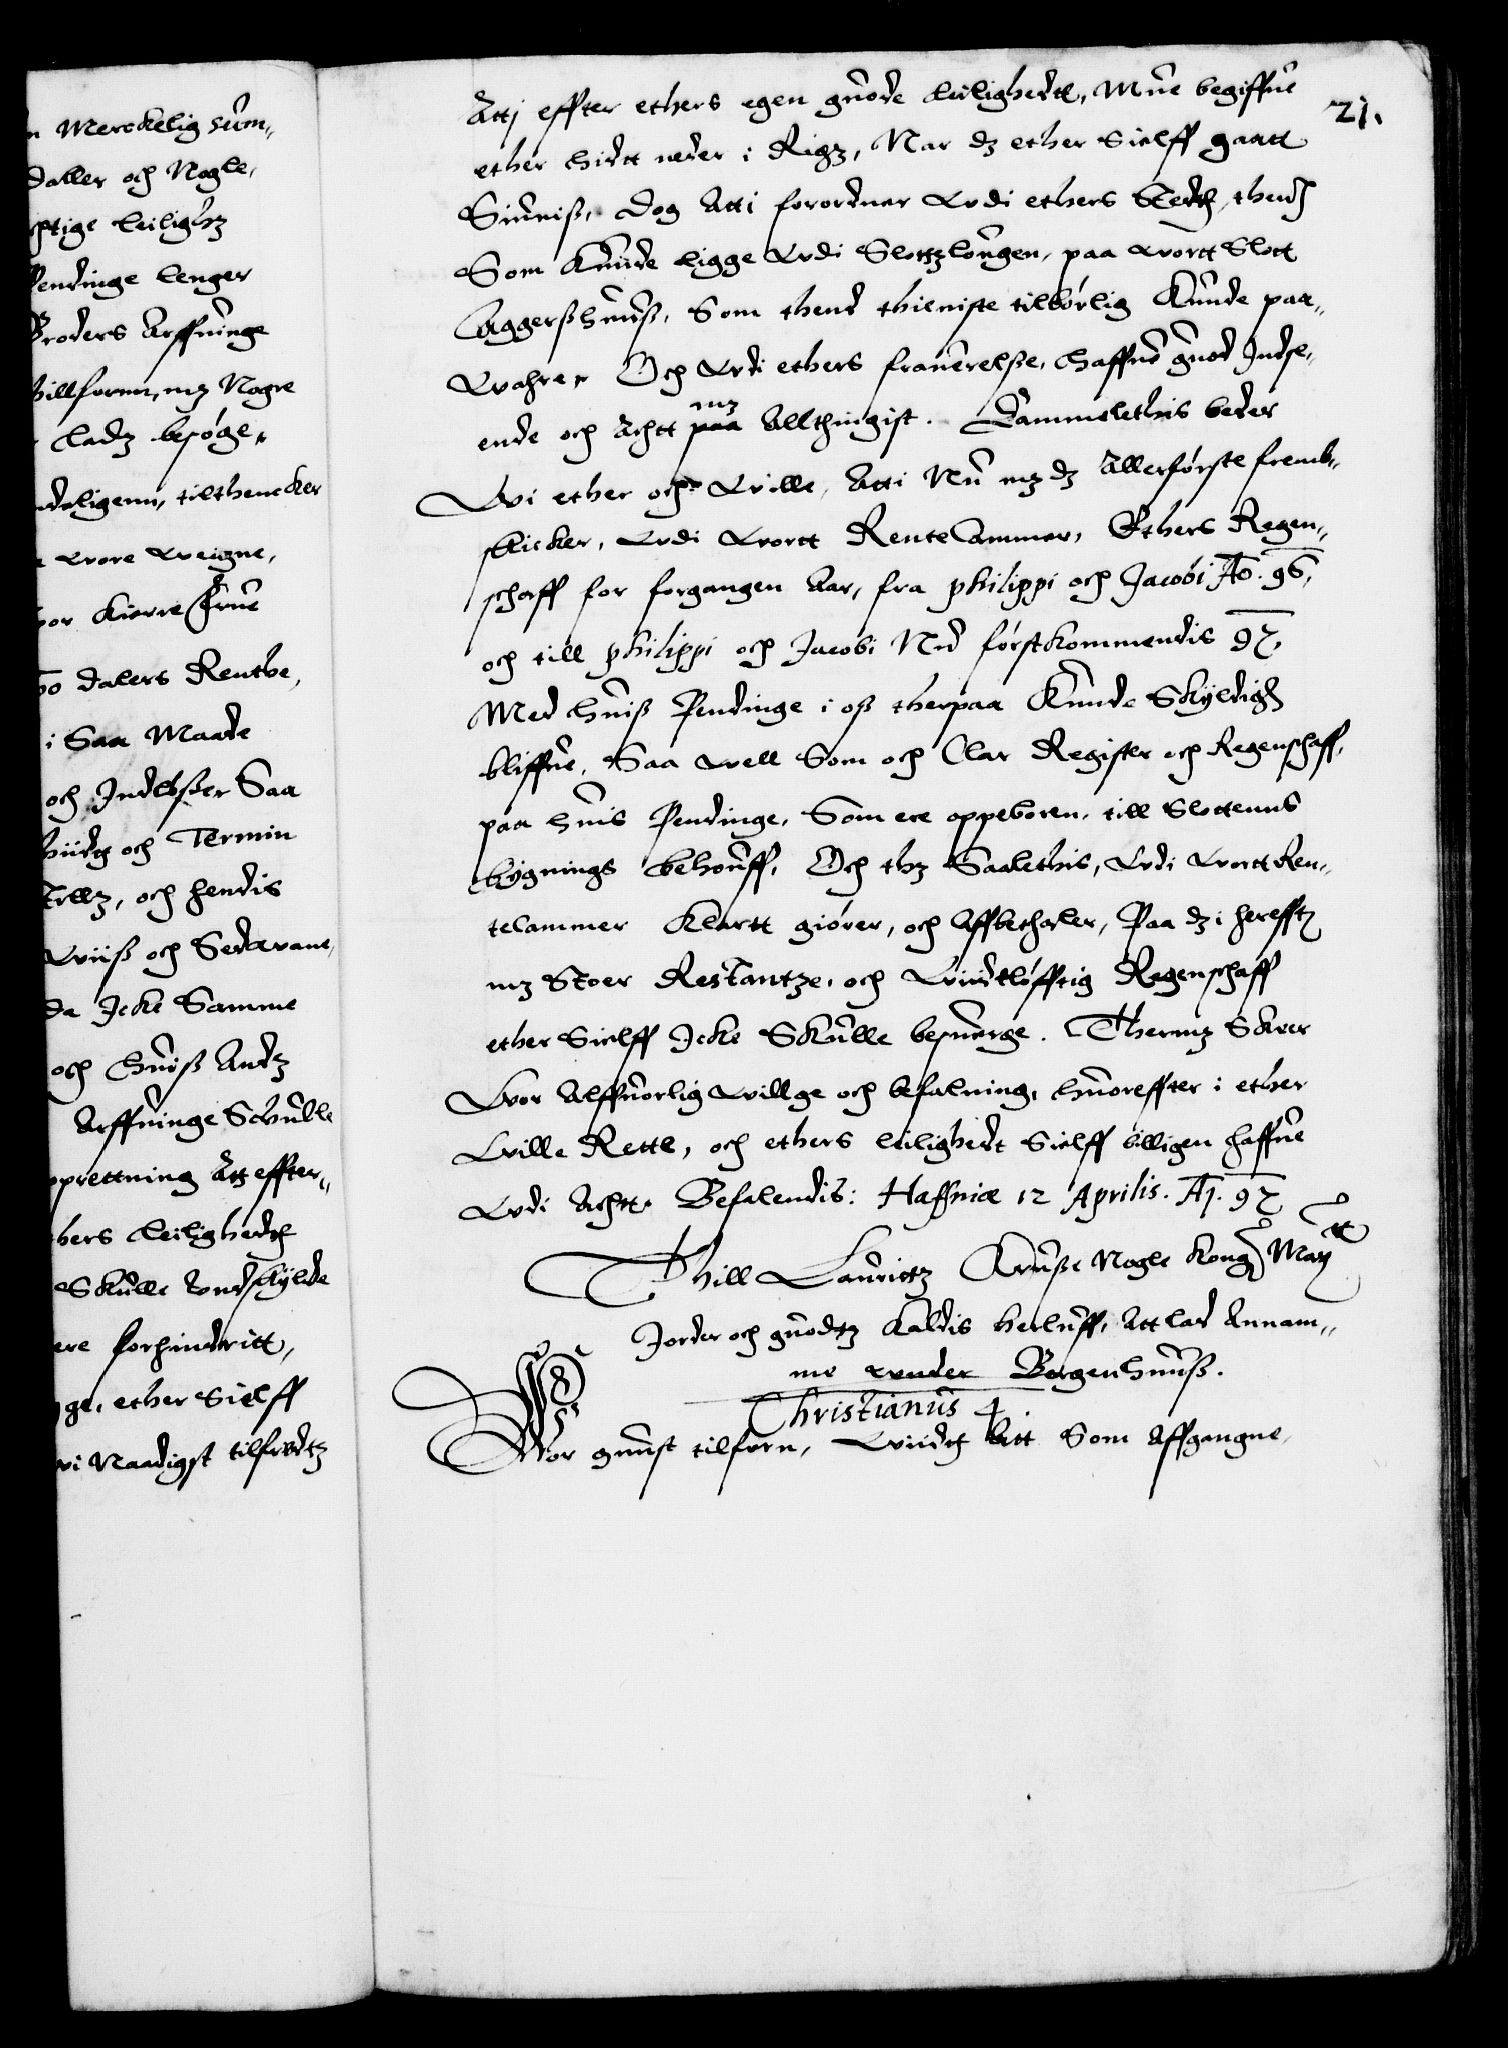 n Merckelig sum„
daller och Nogle,
chtige leilighz
Pendinge lenger
Broders Arffuinge
hillforun, mz Nogre
ladz besøge,
ndeligenn, tilthencker
uore ureigne,
for kierre Frue
00 dalers Renthe,
i Saa Maade
och Indløßer Saa
hiidtz och Termin
och hendis
uiiß och Sedeuane,
da Icke Samme
och huiß Andz
Arffuinge Schulle
pprettning Atj effter„
thers leilighedtz
Skulle Uondskylde
ere forhindritt,
ge, ether Sielff
vi Naadigst tilfredtz
21.
Attj effter ethers egen guode Leilighedtt, Mue begiffue
ether hidtt neder i Rigz, Nar dz ether Sielff gaatt
Siuniß, dog Atti forordner Udi ethers Stedtz, thend
Som kunde ligge Udi Slottzlougen, paa uortt Slott
Aggerßhuuß, Som thend thieniste tilbørlig kunde paa„
uahre, Och Udi ethers frauerelße, haffue guod Indse„
ende och Achtt paa mz Allthingist. Sammeledis beder
Wi ether och Uille, Atti Nu mz dz Allerførste fremb„
skicker, Udi uortt RenteCammer, Ethers Regen„
schaff for forgangen Aar, fra philippi och Jacobi Ao. 96,
och till philippi och Jacobi Nu førstkommendis 97,
Med huiß Pendinge i oß therpaa kunde Skyldigh
bliffue, Saa well Som och Clar Register och Regenschaff,
paa huis Pendinge, Som ere oppeboren, till Slottenns
bygnings behouff, Och thz Saalethis, Udi uortt Ren„
tecammer klartt giører, och Affbethaler, Paa dz i hereffter
mz Stoer Restantze, och Uiidtløfftig Regenschaff
ether Sielff Icke Skulle besuerge. Thermz Skeer
Uor Alffuorlig uillge och befalning, huoreffter i ether
Uille Rette, och ethers leilighedt Sielff billigen haffue
Udi Achtt. Befalendis: Haffniæ 12 Aprilis. A̅j̅. 97
Thill Lauritz Kruße Nogle Kong: Maytt
Jorder och guodtz kaldis herluff, Att lad Annam„
me uunder Bergenhuuß.
Christianus 4
Wor gunst tilforn, Uiidtz Att Som Affgangne,